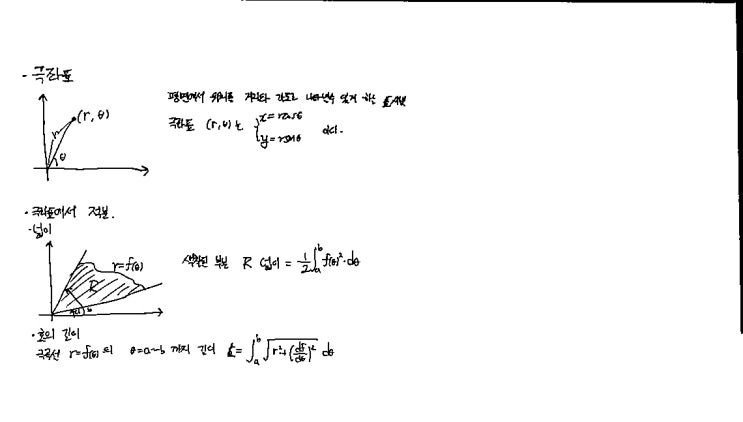 · 극좌표
(r, θ)
r
θ
평면에서 위치를 거리와 각도로 나타낼수 있게 하는 표시법
극좌표 (r, θ)는 { x = rcosθ
y = rsinθ 이다.
· 극좌표에서 적분.
· 넓이
r=f(θ)
R
색칠된 부분 R 넓이 = \frac{1}{2}∫_a^b f(θ)²·dθ
· 호의 길이
극곡선 r=f(θ)의 θ=a~b 까지 길이 L = ∫_a^b √(r²+(\frac{df}{dθ})²) dθ